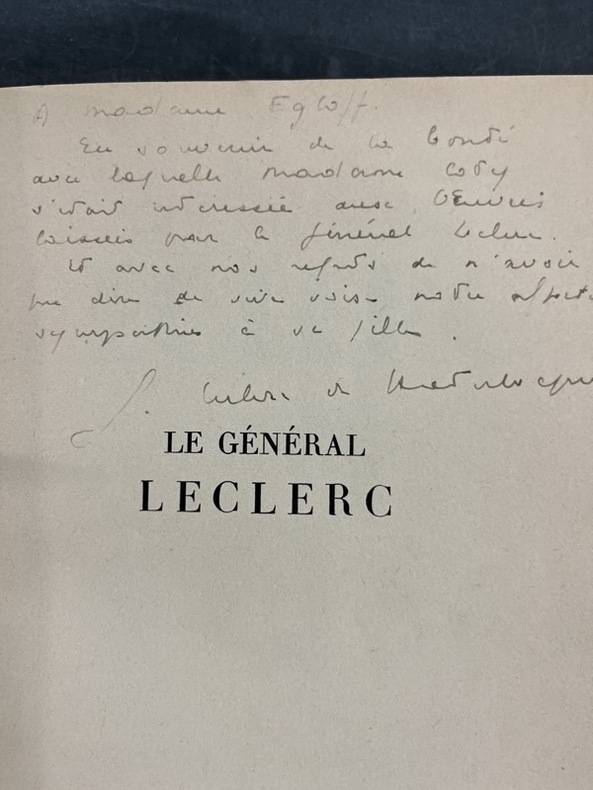 A madame Egloff.
En souvenir de la bonté
avec laquelle madame Coty
s'était intéressée aux Oeuvres
laissées par le général Leclerc.
Et avec nos regrets de n'avoir
pu dire de vive voix notre
sympathie à sa fille.
Leclerc de Hauteclocque
LE GÉNÉRAL
LECLERC